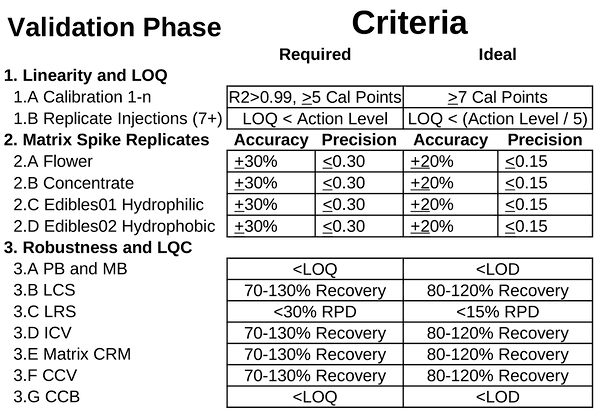 Validation Phase Criteria
Required Ideal
1. Linearity and LOQ
1.A Calibration 1-n R2>0.99, ≥5 Cal Points ≥7 Cal Points
1.B Replicate Injections (7+) LOQ < Action Level LOQ < (Action Level / 5)
2. Matrix Spike Replicates Accuracy Precision Accuracy Precision
2.A Flower ±30% ≤0.30 ±20% ≤0.15
2.B Concentrate ±30% ≤0.30 ±20% ≤0.15
2.C Edibles01 Hydrophilic ±30% ≤0.30 ±20% ≤0.15
2.D Edibles02 Hydrophobic ±30% ≤0.30 ±20% ≤0.15
3. Robustness and LQC
3.A PB and MB <LOQ <LOD
3.B LCS 70-130% Recovery 80-120% Recovery
3.C LRS <30% RPD <15% RPD
3.D ICV 70-130% Recovery 80-120% Recovery
3.E Matrix CRM 70-130% Recovery 80-120% Recovery
3.F CCV 70-130% Recovery 80-120% Recovery
3.G CCB <LOQ <LOD